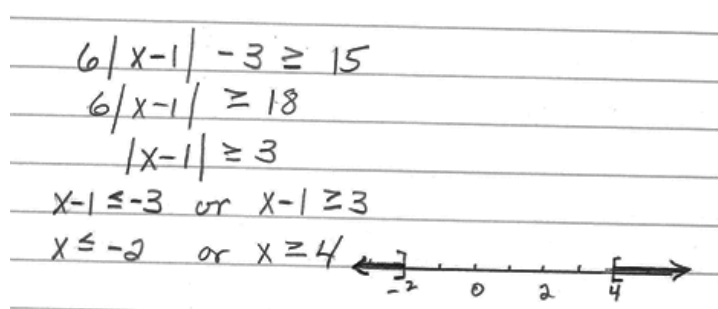 6|x-1| - 3 ≥ 15
6|x-1| ≥ 18
|x-1| ≥ 3
x-1 ≤ -3 or x-1 ≥ 3
x ≤ -2 or x ≥ 4
-2 0 2 4